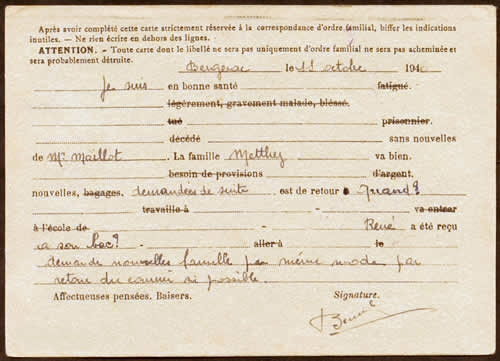 Après avoir complété cette carte strictement réservée à la correspondance d'ordre familial, biffer les indications
inutiles. — Ne rien écrire en dehors des lignes.
ATTENTION. - Toute carte dont le libellé ne sera pas uniquement d'ordre familial ne sera pas acheminée et
sera probablement détruite.
Bergerac le 11 octobre 194
je suis en bonne santé fatigué.
légèrement, gravement malade, blessé.
tué prisonnier.
décédé sans nouvelles
de Mr Maillot. La famille Metthey va bien.
besoin de provisions d'argent.
nouvelles, bagages. demandées de suite est de retour quand?
travaille à va entrer
à l'école de René a été reçu
à son bac? aller à le
demande nouvelles famille par même mode par
retour du courrier si possible.
Affectueuses pensées. Baisers. Signature.